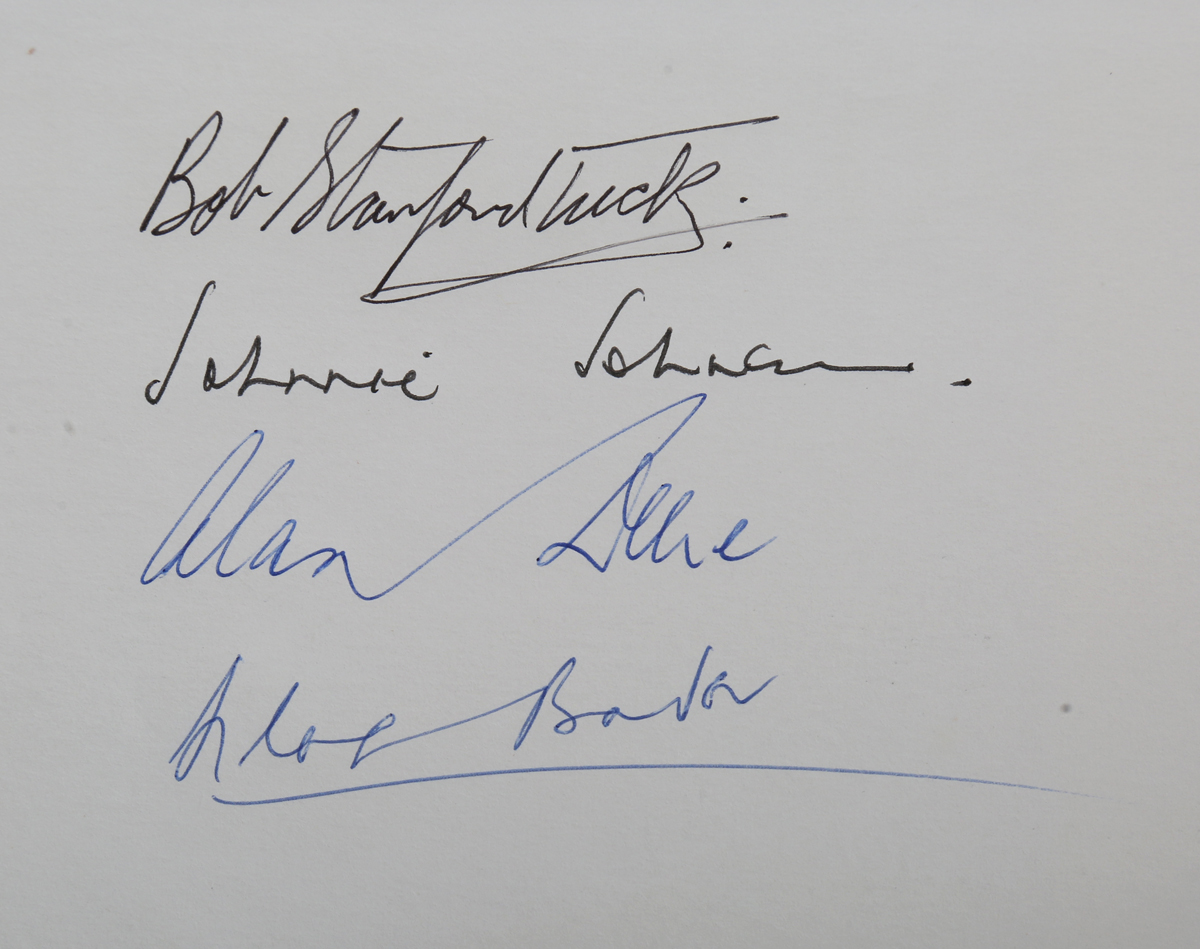 Bob Stanford Tuck
Johnnie Johnson
Alan Deere
Bader